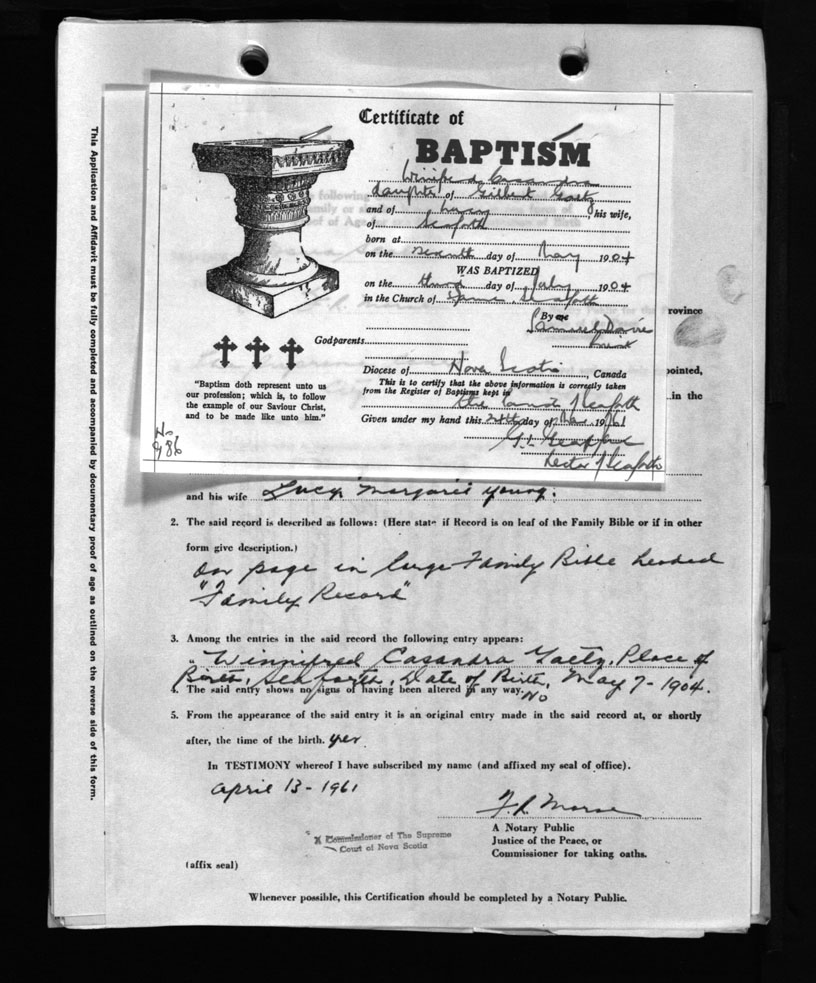 Certificate of
BAPTISM
Winifred Casandra
daughter of Gilbert Gaetz
and of Lucy, his wife,
of Seaforth
born at
on the seventh day of May 1904
WAS BAPTIZED
on the third day of July 1904
in the Church of James, Seaforth
By me
Samuel Davies
Priest
Godparents
Diocese of Nova Scotia, Canada
This is to certify that the above information is correctly taken
from the Register of Baptisms kept in
the Parish of Seaforth
Given under my hand this day of 1961
Rector of Seaforth
"Baptism doth represent unto us
our profession; which is, to follow
the example of our Saviour Christ,
and to be made like unto him."
No
986
rovince
ointed,
in the
and his wife Lucy Margaret Young.
2. The said record is described as follows: (Here state if Record is on leaf of the Family Bible or if in other
form give description.)
on page in large Family Bible headed
"Family Record"
3. Among the entries in the said record the following entry appears:
"Winnifred Casandra Gaetz, Place of
Birth, Seaforth, Date of Birth, May 7-1904.
4. The said entry shows no signs of having been altered in any way. No
5. From the appearance of the said entry it is an original entry made in the said record at, or shortly
after, the time of the birth. yes
In TESTIMONY whereof I have subscribed my name (and affixed my seal of office).
April 13-1961
F. R. Morse
A Notary Public
Justice of the Peace, or
Commissioner for taking oaths.
A Commissioner of The Supreme
Court of Nova Scotia
(affix seal)
Whenever possible, this Certification should be completed by a Notary Public.
This Application and Affidavit must be fully completed and accompanied by documentary proof of age as outlined on the reverse side of this form.